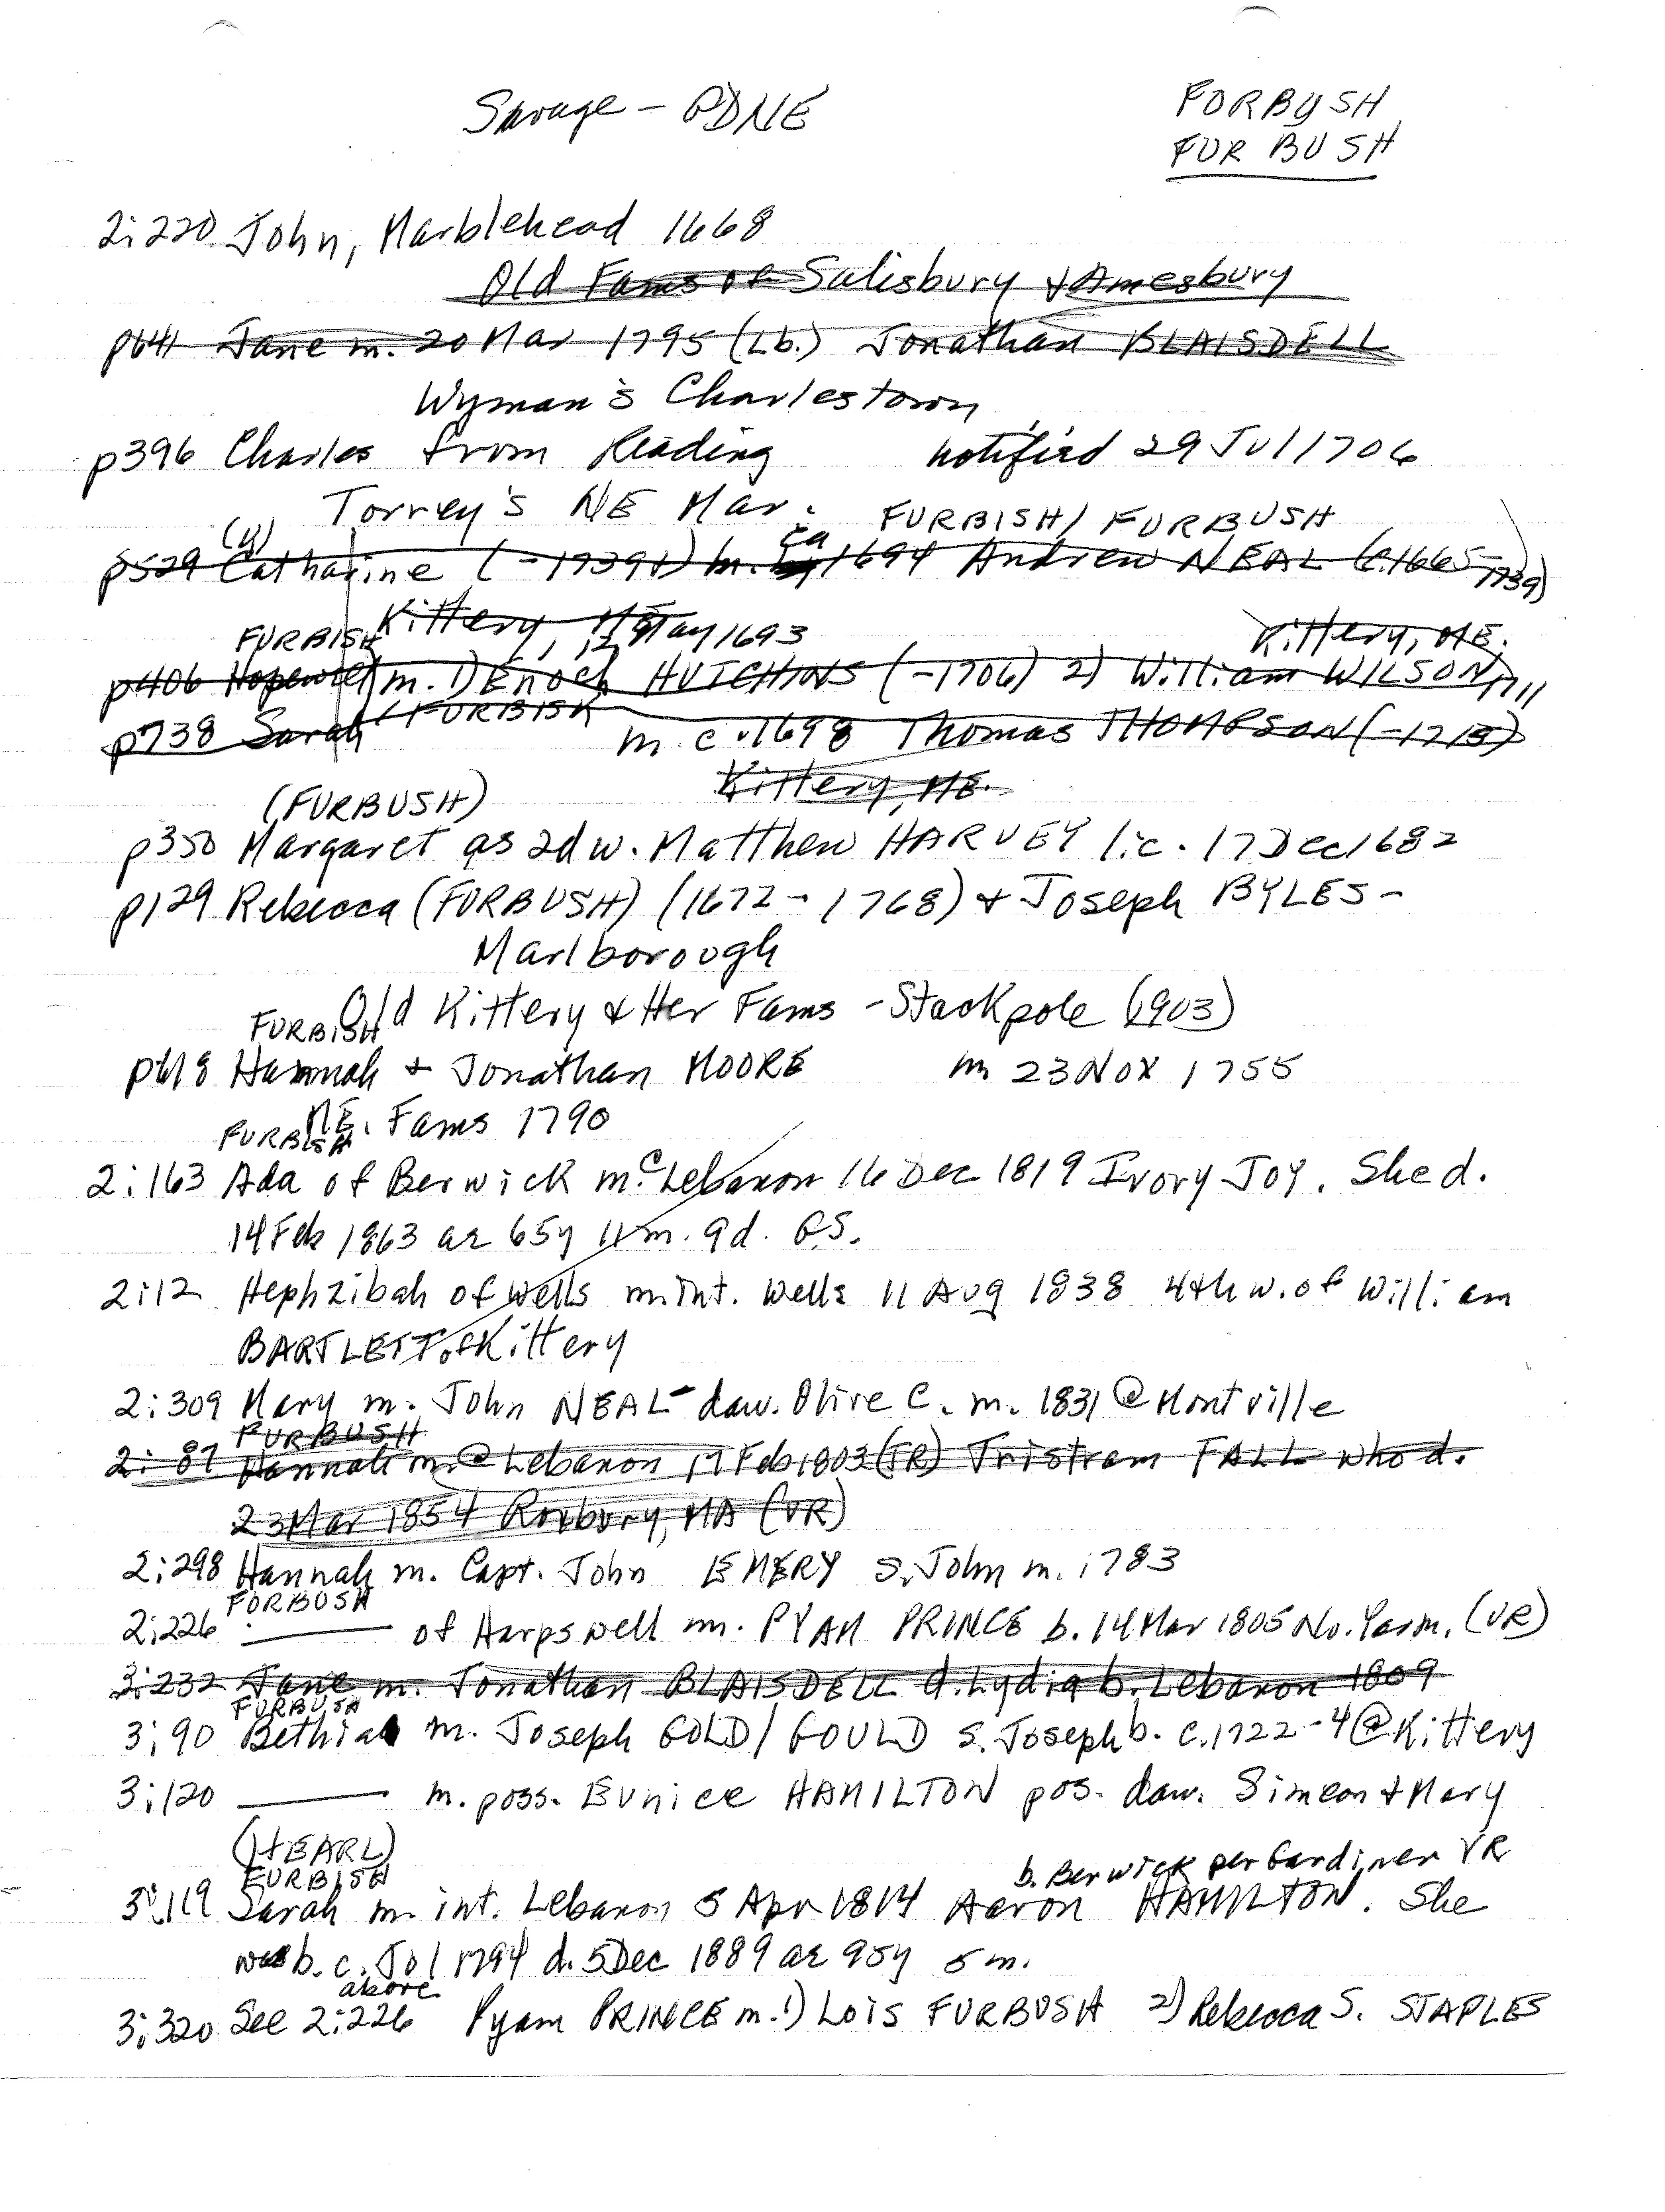 Savage - GDNE
FORBUSH
FURBUSH
2:220 John, Marblehead 1668
Old Fams of Salisbury & Amesbury
p641 Jane m. 20 Mar 1795 (Lb.) Jonathan BLAISDELL
Wyman's Charlestown
p396 Charles from Reading notified 29 Jul 1706
Torrey's NE Mar. FURBISH/FURBUSH
ca
p529 Catharine (-1739+) m. 1694 Andrew NEAL (c.1665-1739)
Kittery, ME
FURBISH 12 May 1693 Kittery, ME.
p406 Hopewell m. 1) Enoch HUTCHINS (-1706) 2) William WILSON, 1711
p738 Sarah (FURBISH m c.1698 Thomas THOMPSON (-1715)
Kittery, ME.
(FURBUSH)
p350 Margaret as 2d w. Matthew HARVEY lic. 17 Dec 1682
p129 Rebecca (FORBUSH) (1672-1768) & Joseph BYLES -
Marlborough
Old Kittery & Her Fams - Stackpole (1903)
FURBISH
p618 Hannah & Jonathan MOORE m 23 Nov 1755
ME. Fams 1790
FURBISH
2:163 Ada of Berwick m. Lebanon 16 Dec 1819 Ivory JOY. She d.
14 Feb 1863 ae 65y 11m. 9d. GS.
2:12 Hephzibah of Wells m. int. Wells 11 Aug 1838 4th w. of William
BARTLETT of Kittery
2:309 Mary m. John NEAL - dau. Olive C. m. 1831 @ Montville
FURBUSH
2:87 Hannah m. @ Lebanon 17 Feb 1803 (TR) Tristram FALL who d.
23 Mar 1854 Roxbury, MA (VR)
2:298 Hannah m. Capt. John EMERY s. John m. 1783
FORBUSH
2:226 ——— of Harpswell m. PYAM PRINCE b. 14 Mar 1805 No. Yarm. (VR)
3:232 Jane m. Jonathan BLAISDELL d. Lydia b. Lebanon 1809
FURBUSH
3:90 Bethiah m. Joseph GOLD/GOULD s. Joseph b. c.1722-4 @ Kittery
3:120 ——— m. poss. Eunice HAMILTON pos. dau. Simeon & Mary
(HEARL)
FURBISH b. Berwick per Gardiner VR
3:119 Sarah m. int. Lebanon 5 Apr 1814 Aaron HAMILTON. She
was b. c. Jul 1794 d. 5 Dec 1889 ae 95y 5 m.
above
3:320 See 2:226 Pyam PRINCE m. 1) Lois FURBUSH 2) Rebecca S. STAPLES